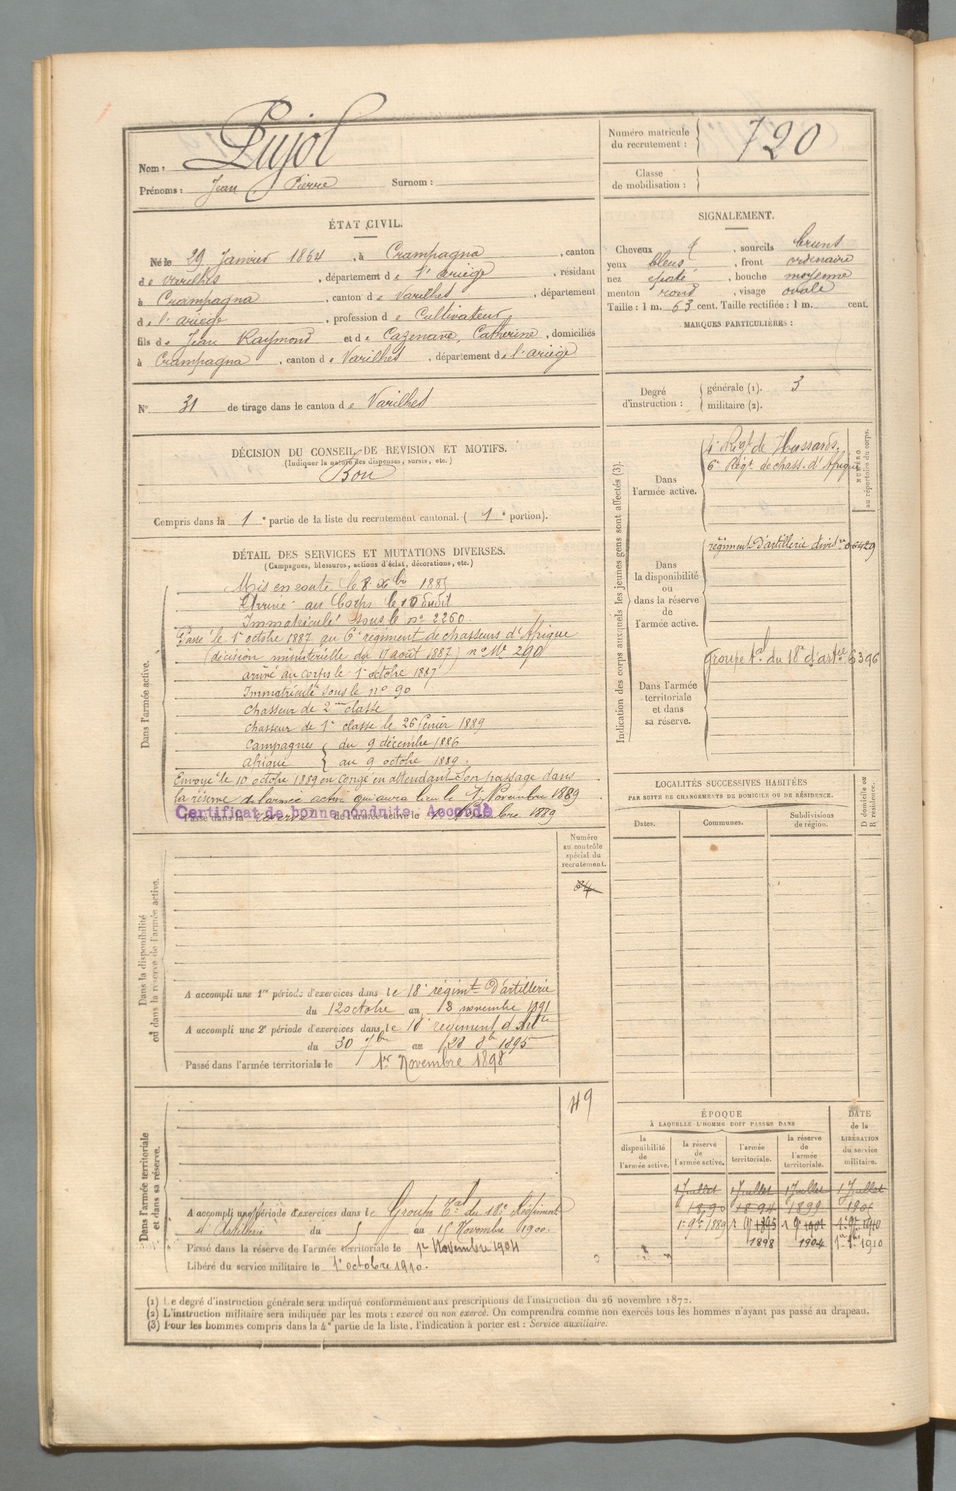 Nom : Pujol
Prénoms : Jean Pierre Surnom :
Numéro matricule du recrutement : 720
Classe de mobilisation :
ÉTAT CIVIL.
Né le 29 Janvier 1864, à Crampagna, canton
de Varilhes, département de l'Ariège, résidant
à Crampagna, canton de Varilhes, département
de l'ariège, profession de Cultivateur,
fils de Jean Raymond et de Cazenave, Catherine, domiciliés
à Crampagna, canton de Varilhes, département de l'ariège
N° 31 de tirage dans le canton de Varilhes
SIGNALEMENT.
Cheveux , sourcils bruns
yeux bleus, front ordinaire
nez épaté, bouche moyenne
menton rond, visage ovale
Taille : 1 m. 63 cent. Taille rectifiée : 1 m. cent.
MARQUES PARTICULIÈRES :
Degré d'instruction : générale (1). 3
militaire (2).
DÉCISION DU CONSEIL DE REVISION ET MOTIFS.
(Indiquer la nature des dispenses, sursis, etc.)
Bon
Compris dans la 1e partie de la liste du recrutement cantonal. (1e portion).
DÉTAIL DES SERVICES ET MUTATIONS DIVERSES.
(Campagnes, blessures, actions d'éclat, décorations, etc.)
Dans l'armée active.
Mis en route le 8 Xbre 1885
Arrivé au Corps le 10 dudit
Immatriculé sous le n° 2260.
Passé le 1er octobre 1887 au 6e régiment de chasseurs d'Afrique
(décision ministerielle du 17 août 1887) n° Mle 290
arrivé au corps le 1er octobre 1887
Immatriculé sous le n° 90
chasseur de 2me classe
chasseur de 1e classe le 26 février 1889
Campagnes { du 9 décembre 1886
Afrique { au 9 octobre 1889.
Envoyé le 10 octobre 1889 en congé en attendant son passage dans
la réserve de l'armée active qui aura lieu le 1er Novembre 1889
Certificat de bonne conduite Accordé
Passé dans la réserve de l'armée active le 1er Novembre 1889
Indication des corps auxquels les jeunes gens sont affectés (3).
NUMÉRO au répertoire du corps.
Dans l'armée active.
4e Régt de Hussards.
6e Régt de chass. d'Afrique
Dans la disponibilité ou dans la réserve de l'armée active.
régiment d'artillerie
Dans l'armée territoriale et dans sa réserve.
Groupe tal du 18e d'artie 6396
LOCALITÉS SUCCESSIVES HABITÉES
PAR SUITE DE CHANGEMENTS DE DOMICILE OU DE RÉSIDENCE.
Dates. Communes. Subdivisions de région. D domicile ou R résidence.
Dans la disponibilité ou dans la réserve de l'armée active.
Numéro au contrôle spécial du recrutement.
34
A accompli une 1re période d'exercices dans le 18e régimt d'artillerie
du 12 octobre au 13 novembre 1891
A accompli une 2e période d'exercices dans le 18e régiment d'Artie
du 30 7bre au 28 8bre 1895
Passé dans l'armée territoriale le 1er Novembre 1898
Dans l'armée territoriale et dans sa réserve.
49
A accompli une période d'exercices dans le Groupe tal du 18e Régiment
d'Artillerie du 5 au 18 Novembre 1900.
Passé dans la réserve de l'armée territoriale le 1er Novembre 1904
Libéré du service militaire le 1er octobre 1910.
ÉPOQUE
À LAQUELLE L'HOMME DOIT PASSER DANS
DATE de la LIBÉRATION du service militaire.
la disponibilité de l'armée active. la réserve de l'armée active. l'armée territoriale. la réserve de l'armée territoriale.
1 Juillet 1 Juillet 1 Juillet 1 Juillet
1890 1894 1899
1er 9bre 1889 1895 1901 1910
1898 1904 1910
(1) Le degré d'instruction générale sera indiqué conformément aux prescriptions de l'instruction du 26 novembre 1872.
(2) L'instruction militaire sera indiquée par les mots : exercé ou non exercé. On comprendra comme non exercés tous les hommes n'ayant pas passé au drapeau.
(3) Pour les hommes compris dans la 4e partie de la liste, l'indication à porter est : Service auxiliaire.